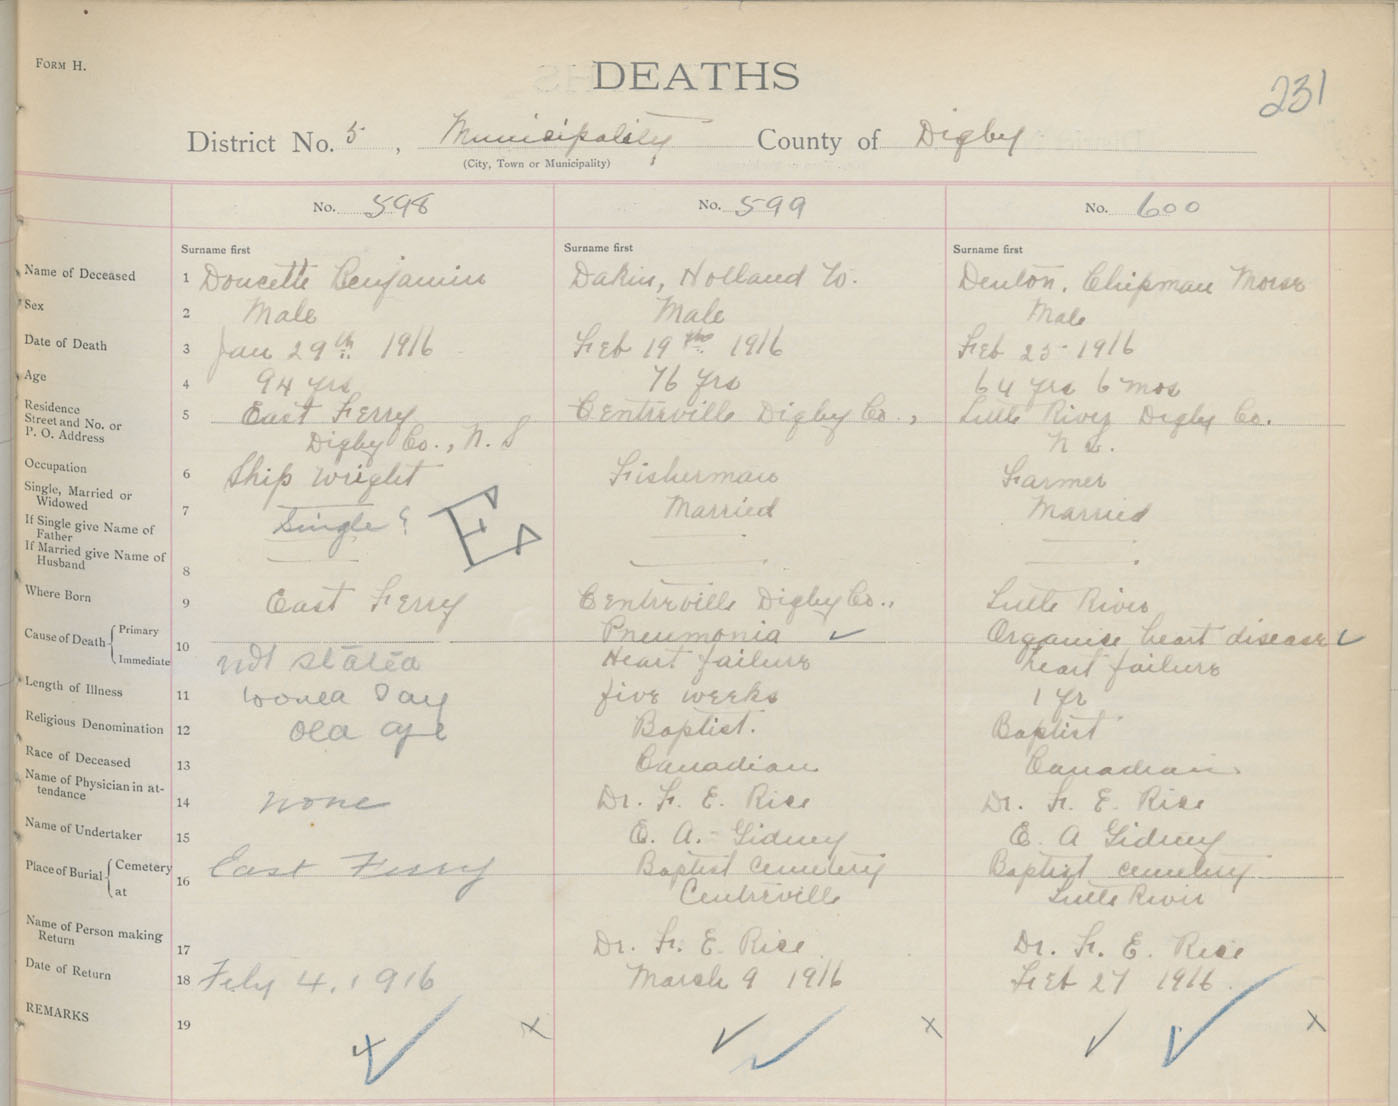 FORM H.
DEATHS
231
District No. 5, Municipality County of Digby
(City, Town or Municipality)
No. 598 No. 599 No. 600
Surname first Surname first Surname first
Name of Deceased 1 Doucette Benjamin Dakin, Holland W. Denton, Chipman Morse
Sex 2 Male Male Male
Date of Death 3 Jan 29th 1916 Feb 19th 1916 Feb 25 1916
Age 4 94 yrs 76 yrs 64 yrs 6 mos
Residence
Street and No. or
P. O. Address
5 East Ferry Centreville Digby Co., Little River Digby Co.
Digby Co., N. S N S.
Occupation 6 Ship wright Fisherman Farmer
Single, Married or
Widowed
7 Single ? Married Married
E
If Single give Name of
Father
If Married give Name of
Husband
8
Where Born 9 East Ferry Centreville Digby Co., Little River
Cause of Death Primary Pneumonia Organic heart disease
Immediate 10 not stated Heart failure heart failure
Length of Illness 11 five weeks 1 yr
Religious Denomination 12 old age Baptist. Baptist
Race of Deceased 13 Canadian Canadian
Name of Physician in at-
tendance
14 none Dr. F. E. Rice Dr. F. E. Rice
Name of Undertaker 15 E. A. Gidney E. A Gidney
Place of Burial Cemetery 16 East Ferry Baptist cemetery Baptist cemetery
at Centreville Little River
Name of Person making
Return
17 Dr. F. E. Rice Dr. F. E. Rice
Date of Return 18 Feby 4, 1916 March 9 1916 Feb 27 1916.
REMARKS 19